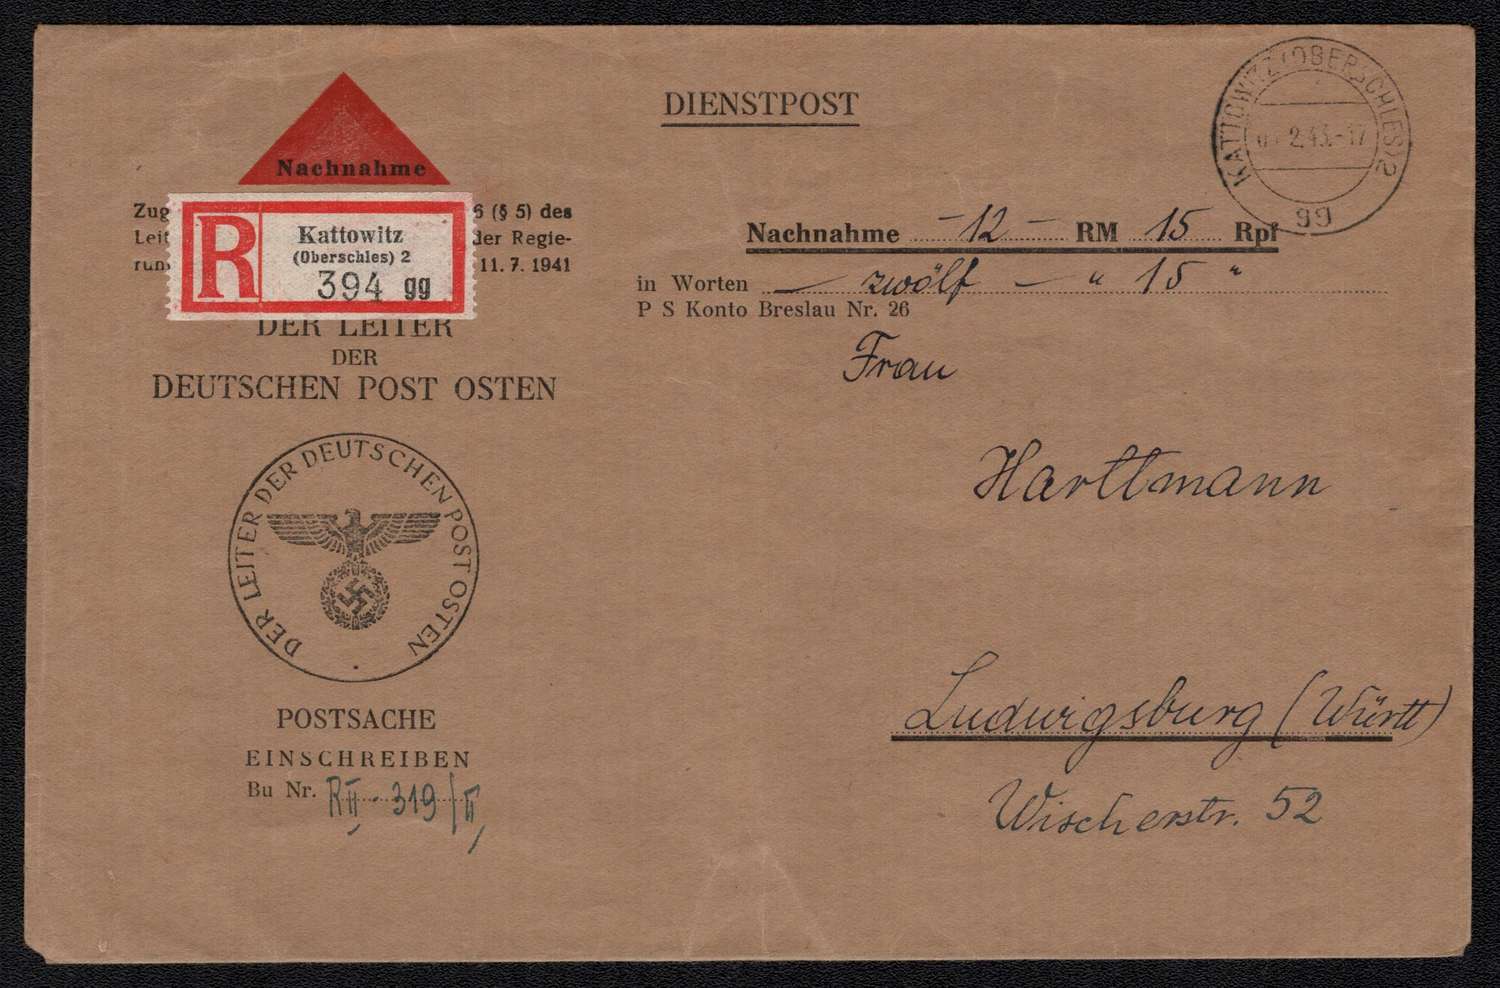 DIENSTPOST
KATTOWITZ (OBERSCHLES) 2
2.43.-17
gg
Nachnahme
6 (§ 5) des
der Regie-
11. 7. 1941
R
Kattowitz
(Oberschles) 2
394 gg
DER LEITER
DER
DEUTSCHEN POST OSTEN
DER LEITER DER DEUTSCHEN POST OSTEN
POSTSACHE
EINSCHREIBEN
Bu Nr. RII - 319/II
Nachnahme - 12 - RM 15 Rpf
in Worten — zwölf — " 15 "
P S Konto Breslau Nr. 26
Frau
Harttmann
Ludwigsburg (Württ)
Wischerstr. 52